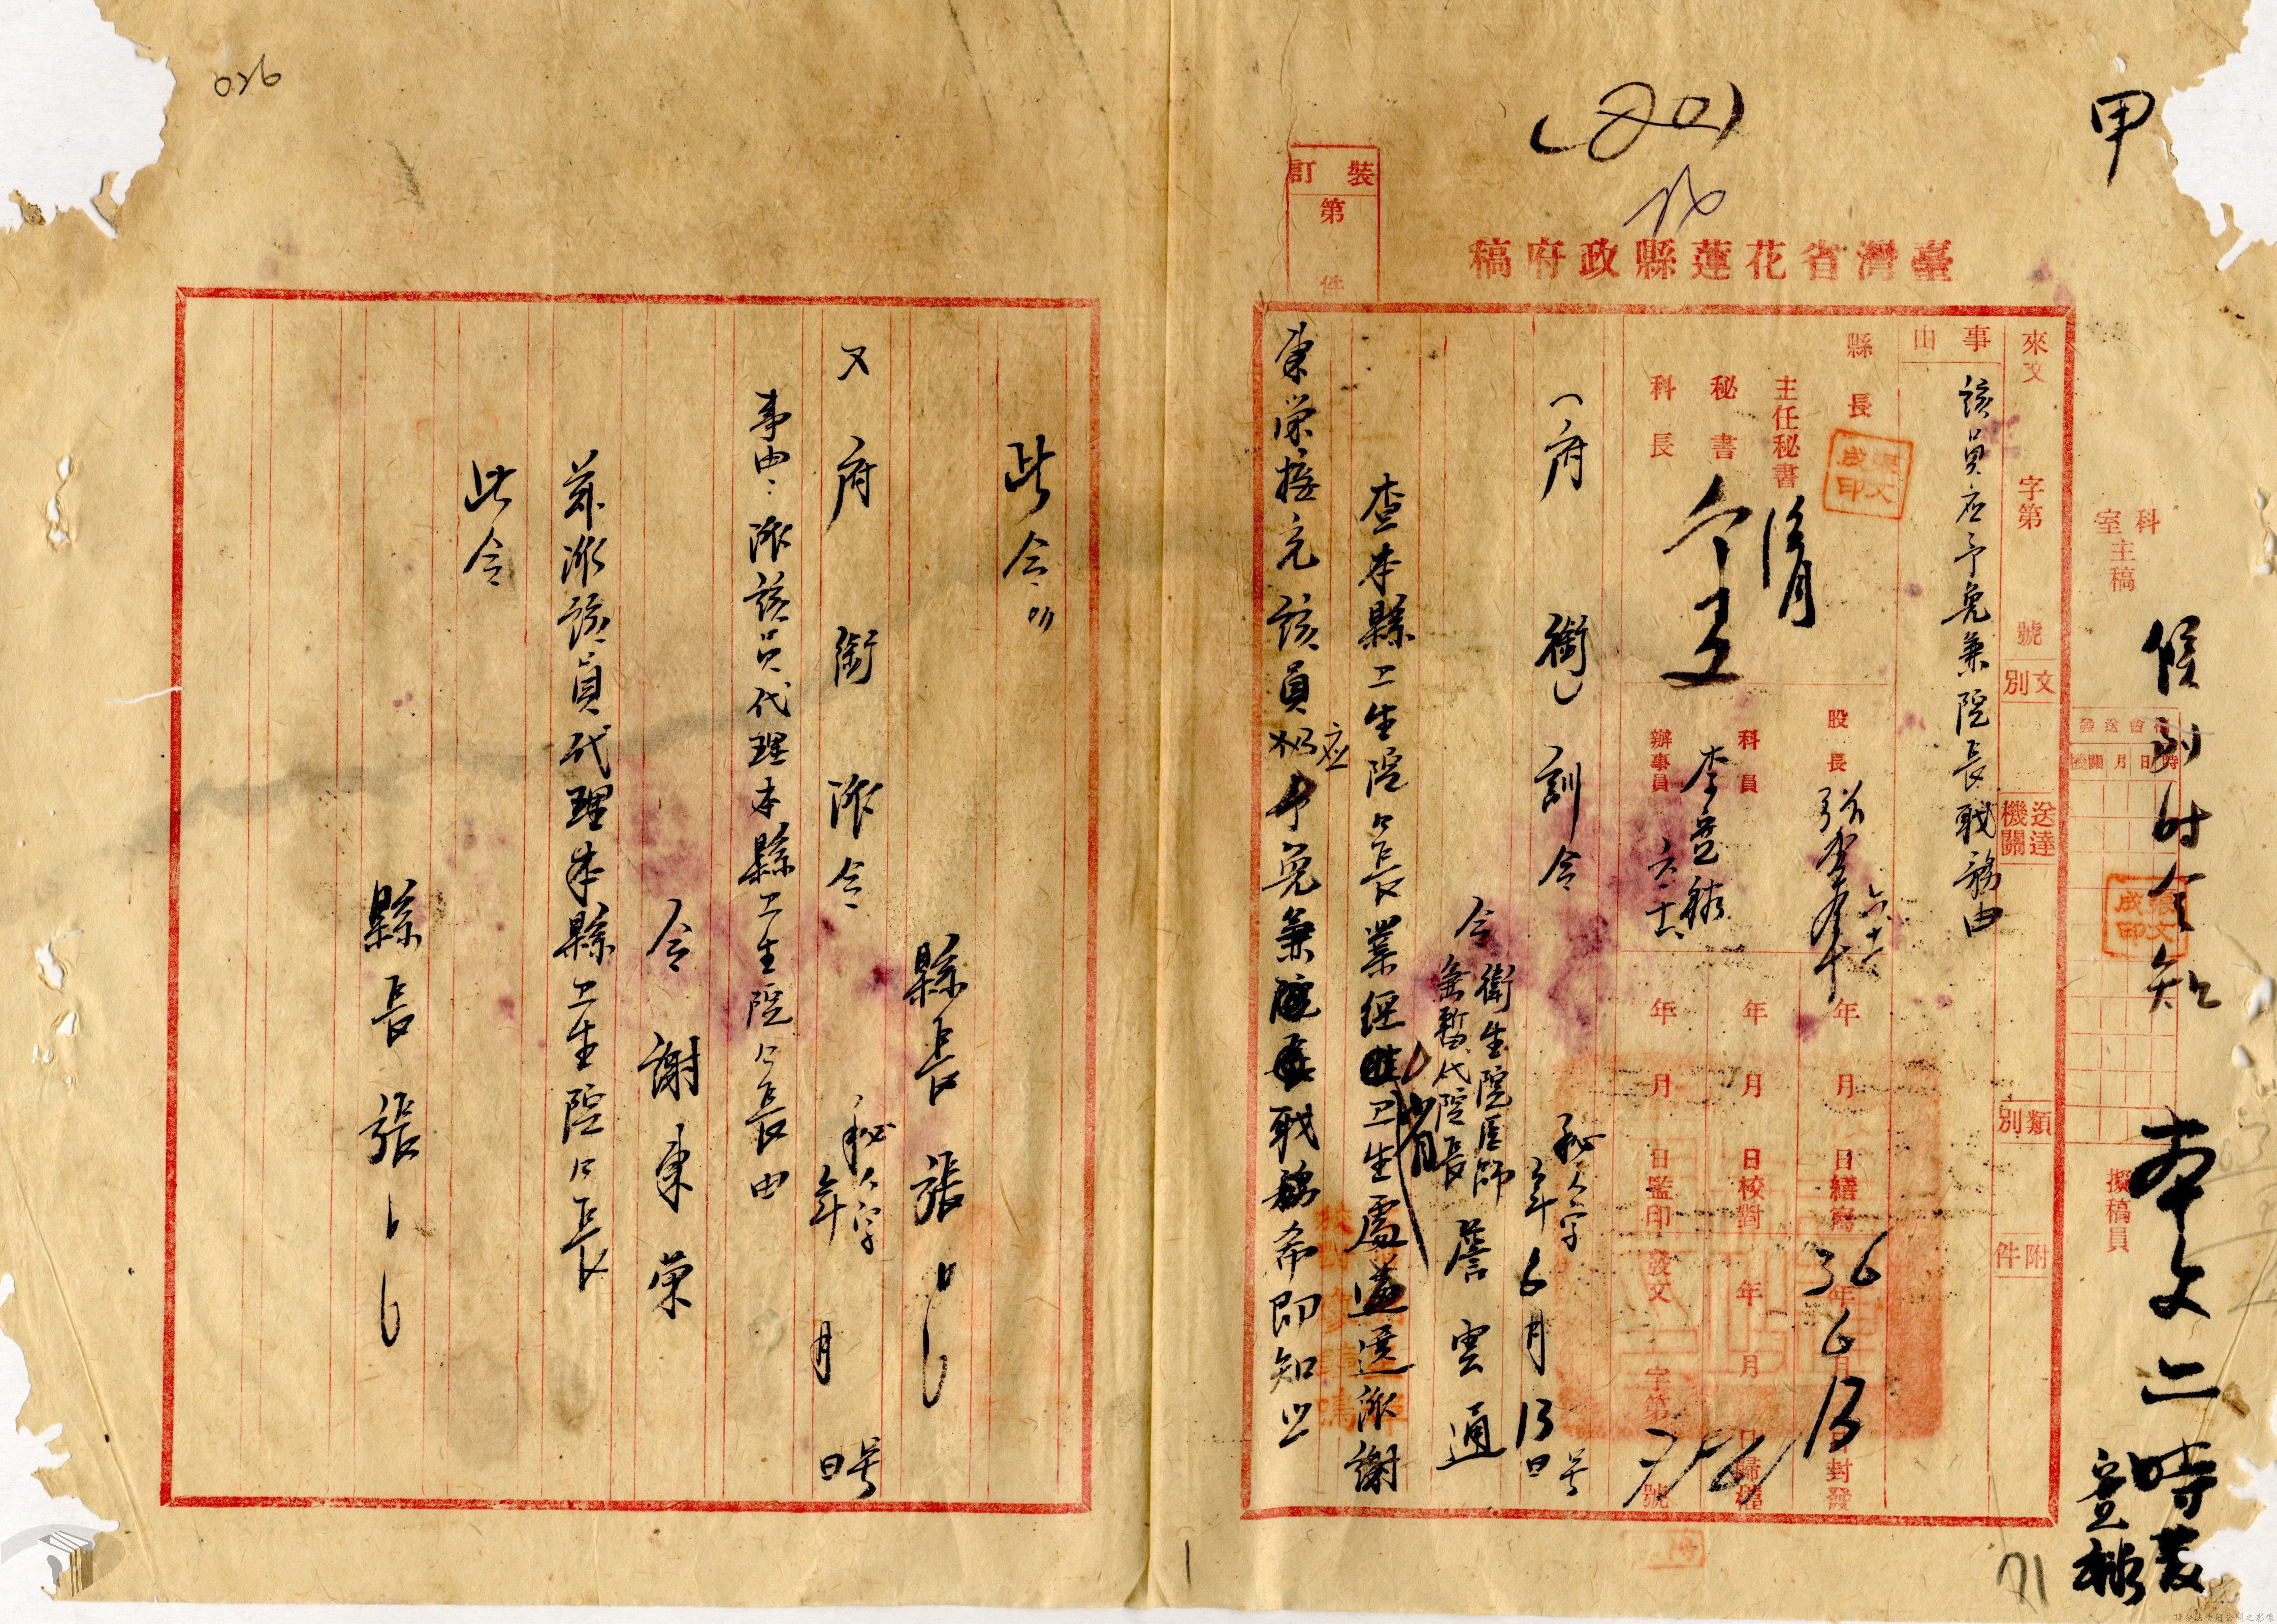 甲
026
臺灣省花蓮縣政府稿
裝訂
第
件
科室主稿
擬稿員
候到時令知
本文二時發
來文
字第
號
文別
送達機關
類別
附件
事由
該員應予免兼院長職務由
縣長
張文成印
主任秘書
秘書
科長
股長
科員
辦事員
六十六
年月日繕寫
年月日校對
年月日監印
年月日封發
年月日歸檔
發文
字第
號
36
6
13
(府銜)訓令
秘人字
年6月13日
号
令
衛生院医師
兼暫代院長
詹雲通
查本縣卫生院々長業經
卫生處遴選派謝
東栄接充該員
应
予免兼
職務希即知照
此令
縣長張
又府銜派令
秘人字
年
月
日
号
事由:派該員代理本縣卫生院々長由
令謝東栄
茲派該員代理本縣卫生院々長
此令
縣長張
71